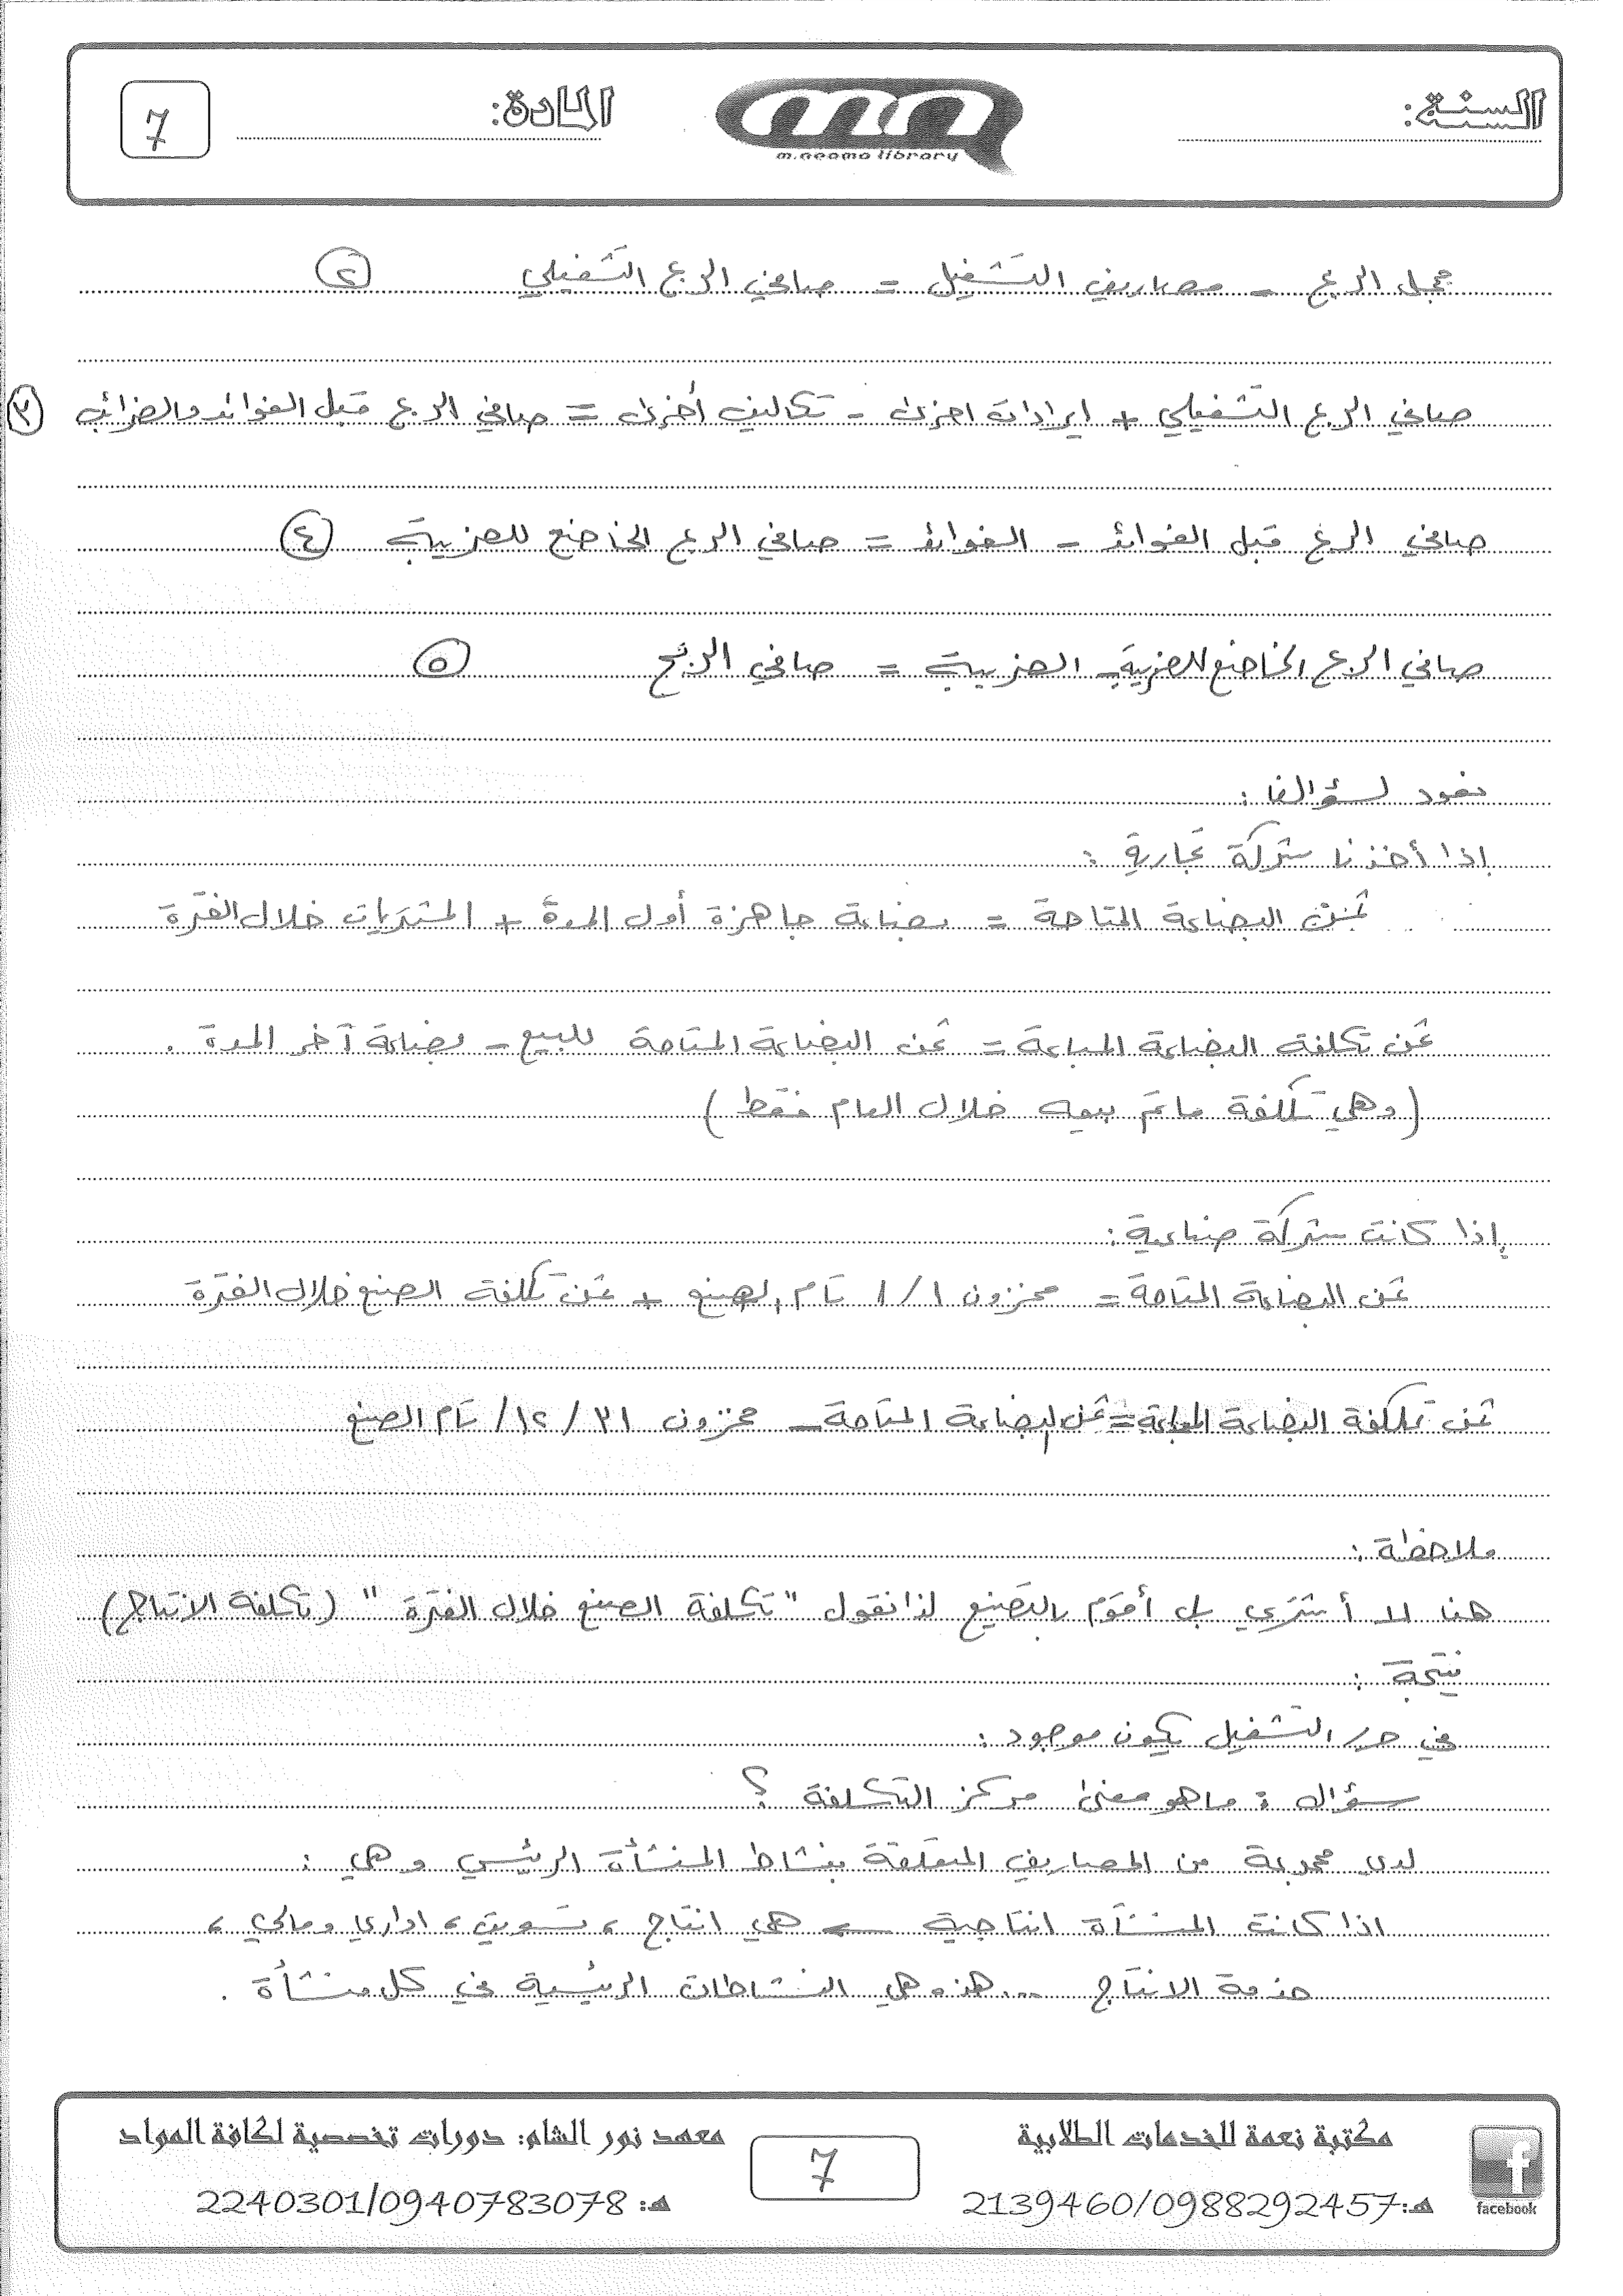 السنة:
m.neama library
المادة:
7
مجمل الربح - مصاريف التشغيل = صافي الربح التشغيلي ②
صافي الربح التشغيلي + ايرادات اخرى - تكاليف أخرى = صافي الربح قبل الفوائد والضرائب ③
صافي الربح قبل الفوائد - الفوائد = صافي الربح الخاضع للضريبة ④
صافي الربح الخاضع للضريبة - الضريبة = صافي الربح ⑤
نعود لسؤالنا :
إذا أخذنا شركة تجارية :
ثمن البضاعة المتاحة = بضاعة جاهزة أول المدة + المشتريات خلال الفترة
ثمن تكلفة البضاعة المباعة = ثمن البضاعة المتاحة للبيع - بضاعة آخر المدة .
(وهي تكلفة ماتم بيعه خلال العام فقط)
إذا كانت شركة صناعية :
ثمن البضاعة المتاحة = مخزون ١/١ تام الصنع + ثمن تكلفة الصنع خلال الفترة
ثمن تكلفة البضاعة المباعة = ثمن البضاعة المتاحة - مخزون ٣١/١٢/ تام الصنع
ملاحظة :
هنا لا أشتري بل أقوم بالتصنيع لذا نقول "تكلفة الصنع خلال الفترة" (تكلفة الانتاج)
نتيجة :
في حـ/ التشغيل يكون موجود :
سؤال : ما هو معنى مركز التكلفة ؟
لدي مجموعة من المصاريف المتعلقة بنشاط المنشأة الرئيسي وهي :
اذا كانت المنشأة انتاجية ← هي انتاج ، تسويق ، اداري ومالي ،
خدمة الانتاج ... هذه هي النشاطات الرئيسية في كل منشأة .
مكتبة نعمة للخدمات الطلابية
هـ: 2139460/0988292457
facebook
7
معهد نور الشام: دورات تخصصية لكافة المواد
هـ: 2240301/0940783078